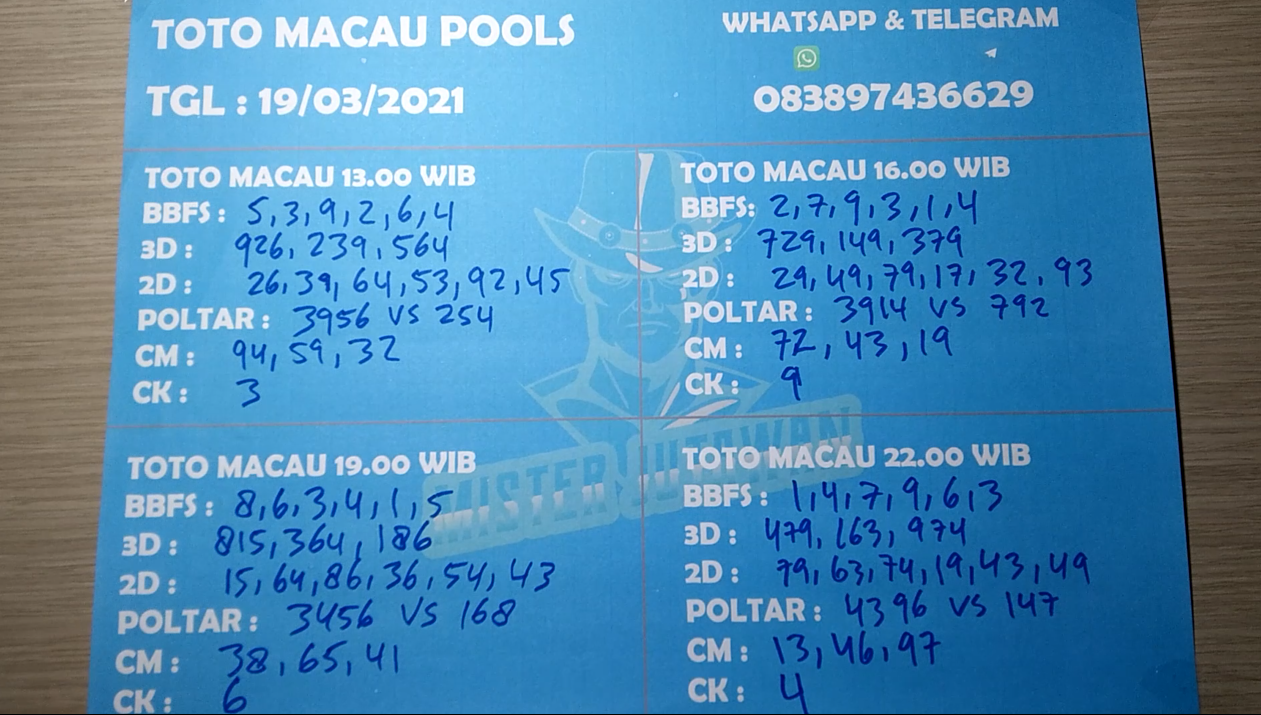 TOTO MACAU POOLS
WHATSAPP & TELEGRAM
TGL : 19/03/2021
083897436629
TOTO MACAU 13.00 WIB
BBFS : 5,3,9,2,6,4
3D : 926, 239, 564
2D : 26, 39, 64, 53, 92, 45
POLTAR : 3956 VS 254
CM : 94, 59, 32
CK : 3
TOTO MACAU 16.00 WIB
BBFS: 2,7,9,3,1,4
3D : 729, 149, 379
2D : 29, 49, 79, 17, 32, 93
POLTAR : 3914 VS 792
CM : 72, 43, 19
CK : 9
TOTO MACAU 19.00 WIB
BBFS : 8,6,3,4,1,5
3D : 815, 364, 186
2D : 15, 64, 86, 36, 54, 43
POLTAR : 3456 VS 168
CM : 38, 65, 41
CK : 6
TOTO MACAU 22.00 WIB
BBFS : 1,4,7,9,6,3
3D : 479, 163, 974
2D : 79, 63, 74, 19, 43, 49
POLTAR : 4396 VS 147
CM : 13, 46, 97
CK : 4
MISTER JUTAWAN